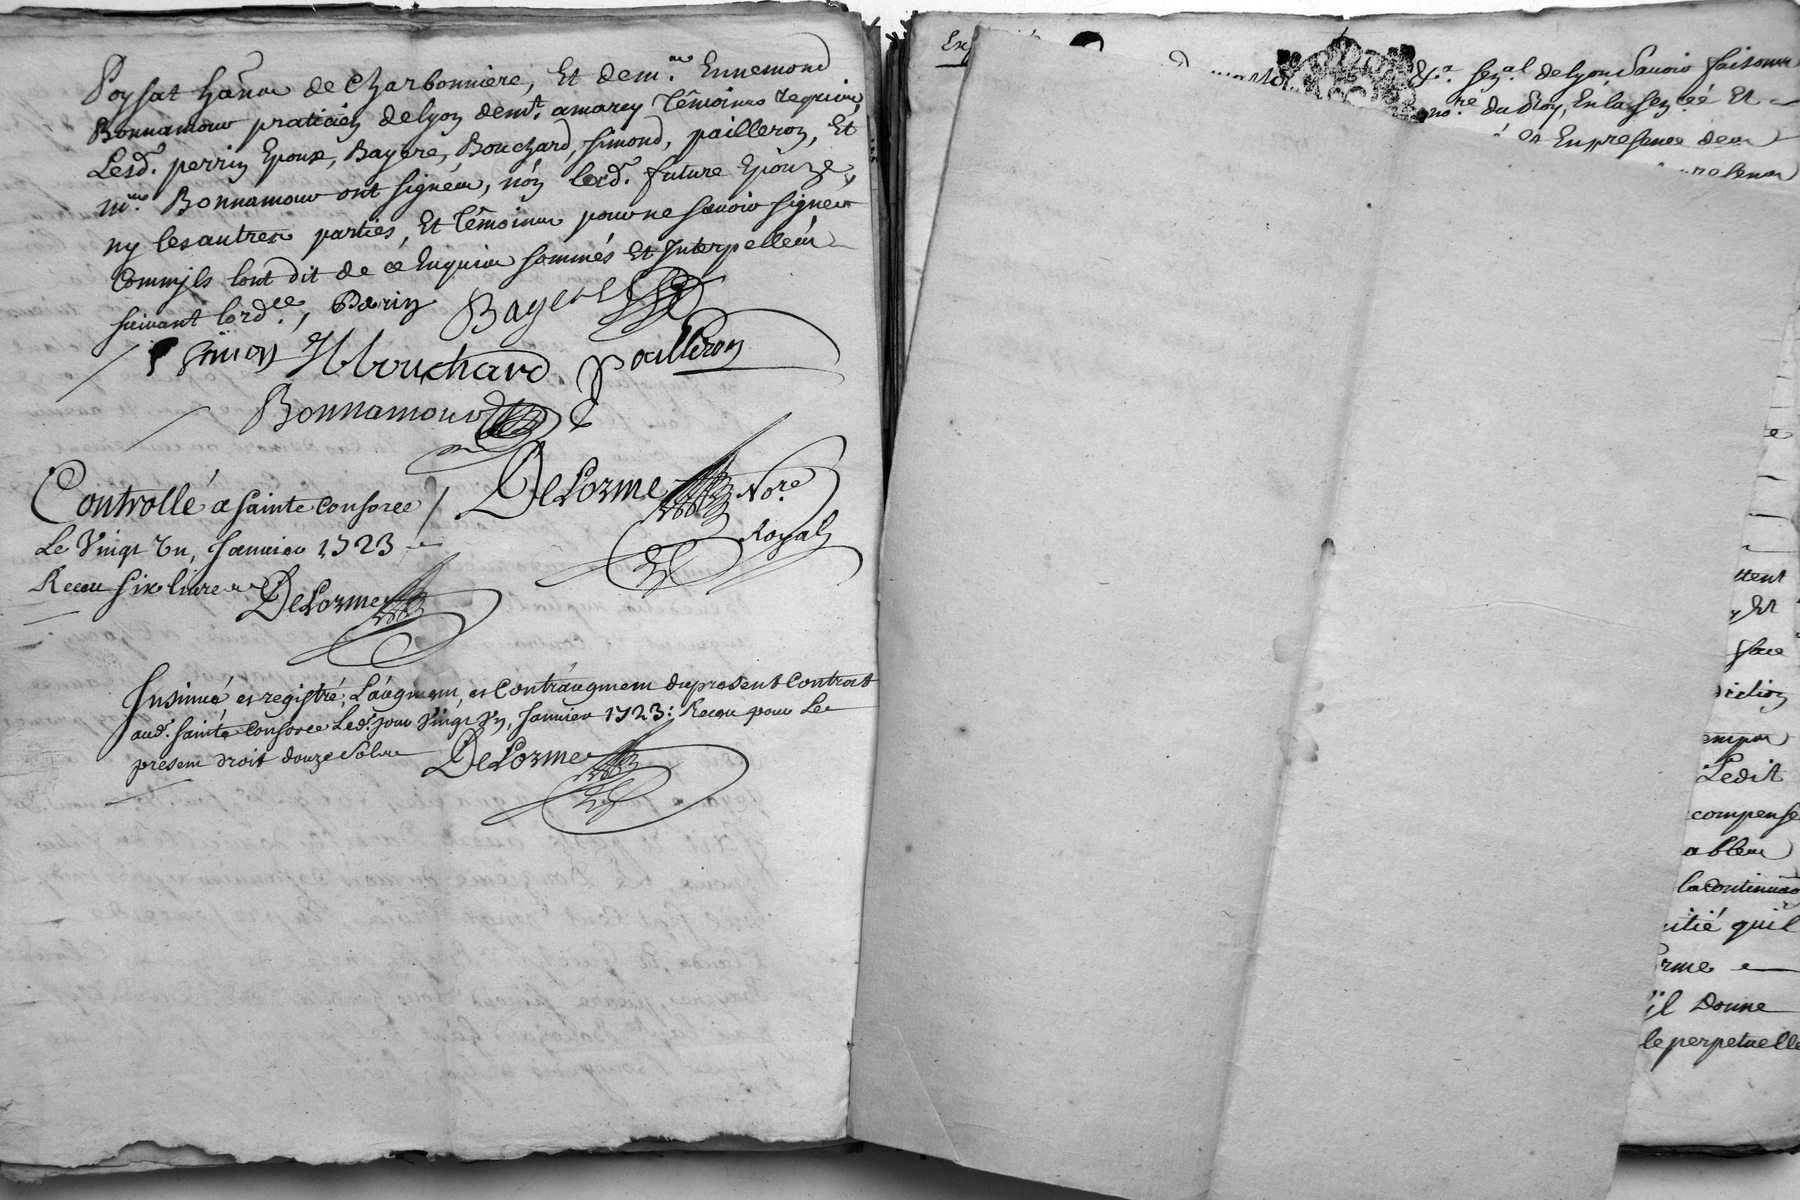 Poysat hãnt de Charbonniere, Et dem.^re Ennemond
Bonnamour praticien de lyon dem.^t amarcy Têmoinns requin,
Lesd. perrin Epoux, Bayere, Bouchard, simond, pailleron, Et
m.^re Bonnamour ont signéz, nón lesd.^e future Epouze,
ny les autres parties, Et Têmoinns pour ne sauoir signer
Commils lont dit de ce Enquis sommés Et Interpelléz
suiuant lord.^ce, Perin Bayere
Simon H bouchard pailleron
Bonnamour
DeLorme No.^re
Royal
Controllé a sainte Consorce
Le Vingt Vn, Januier 1723
Receu six liures DeLorme
Insinué et registré; Laúgment et Contraúgment dupresent Contrat
aud. sainte Consorce Led. jour Vingt Vn, Januier 1723: Receu pour Le
present droit douze sols DeLorme
Ex
sen.^al de lyon Sauoir faisons
no.^re du Roy, En la sen.^cée Et
En presence de
ttent
Et
face
Ledit
compense
able
la Continua
itié quil
rme
il Donne
le perpetuelle